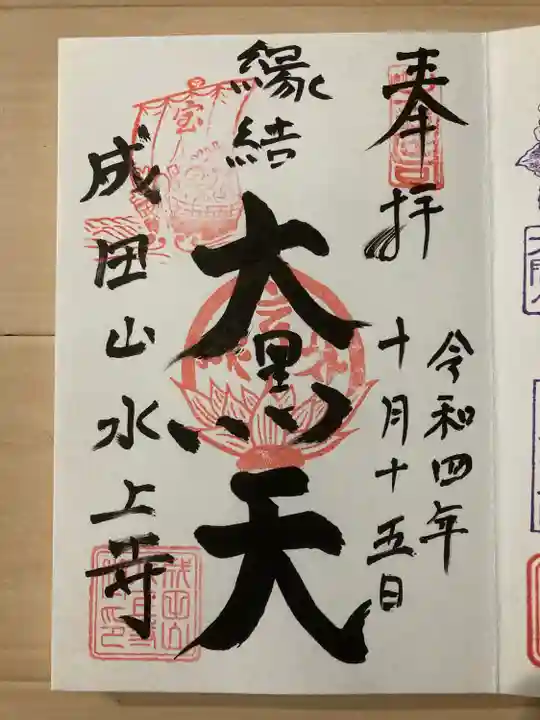 奉拝
令和四年
十月十五日
縁結
大黒天
宝
成田山水上寺